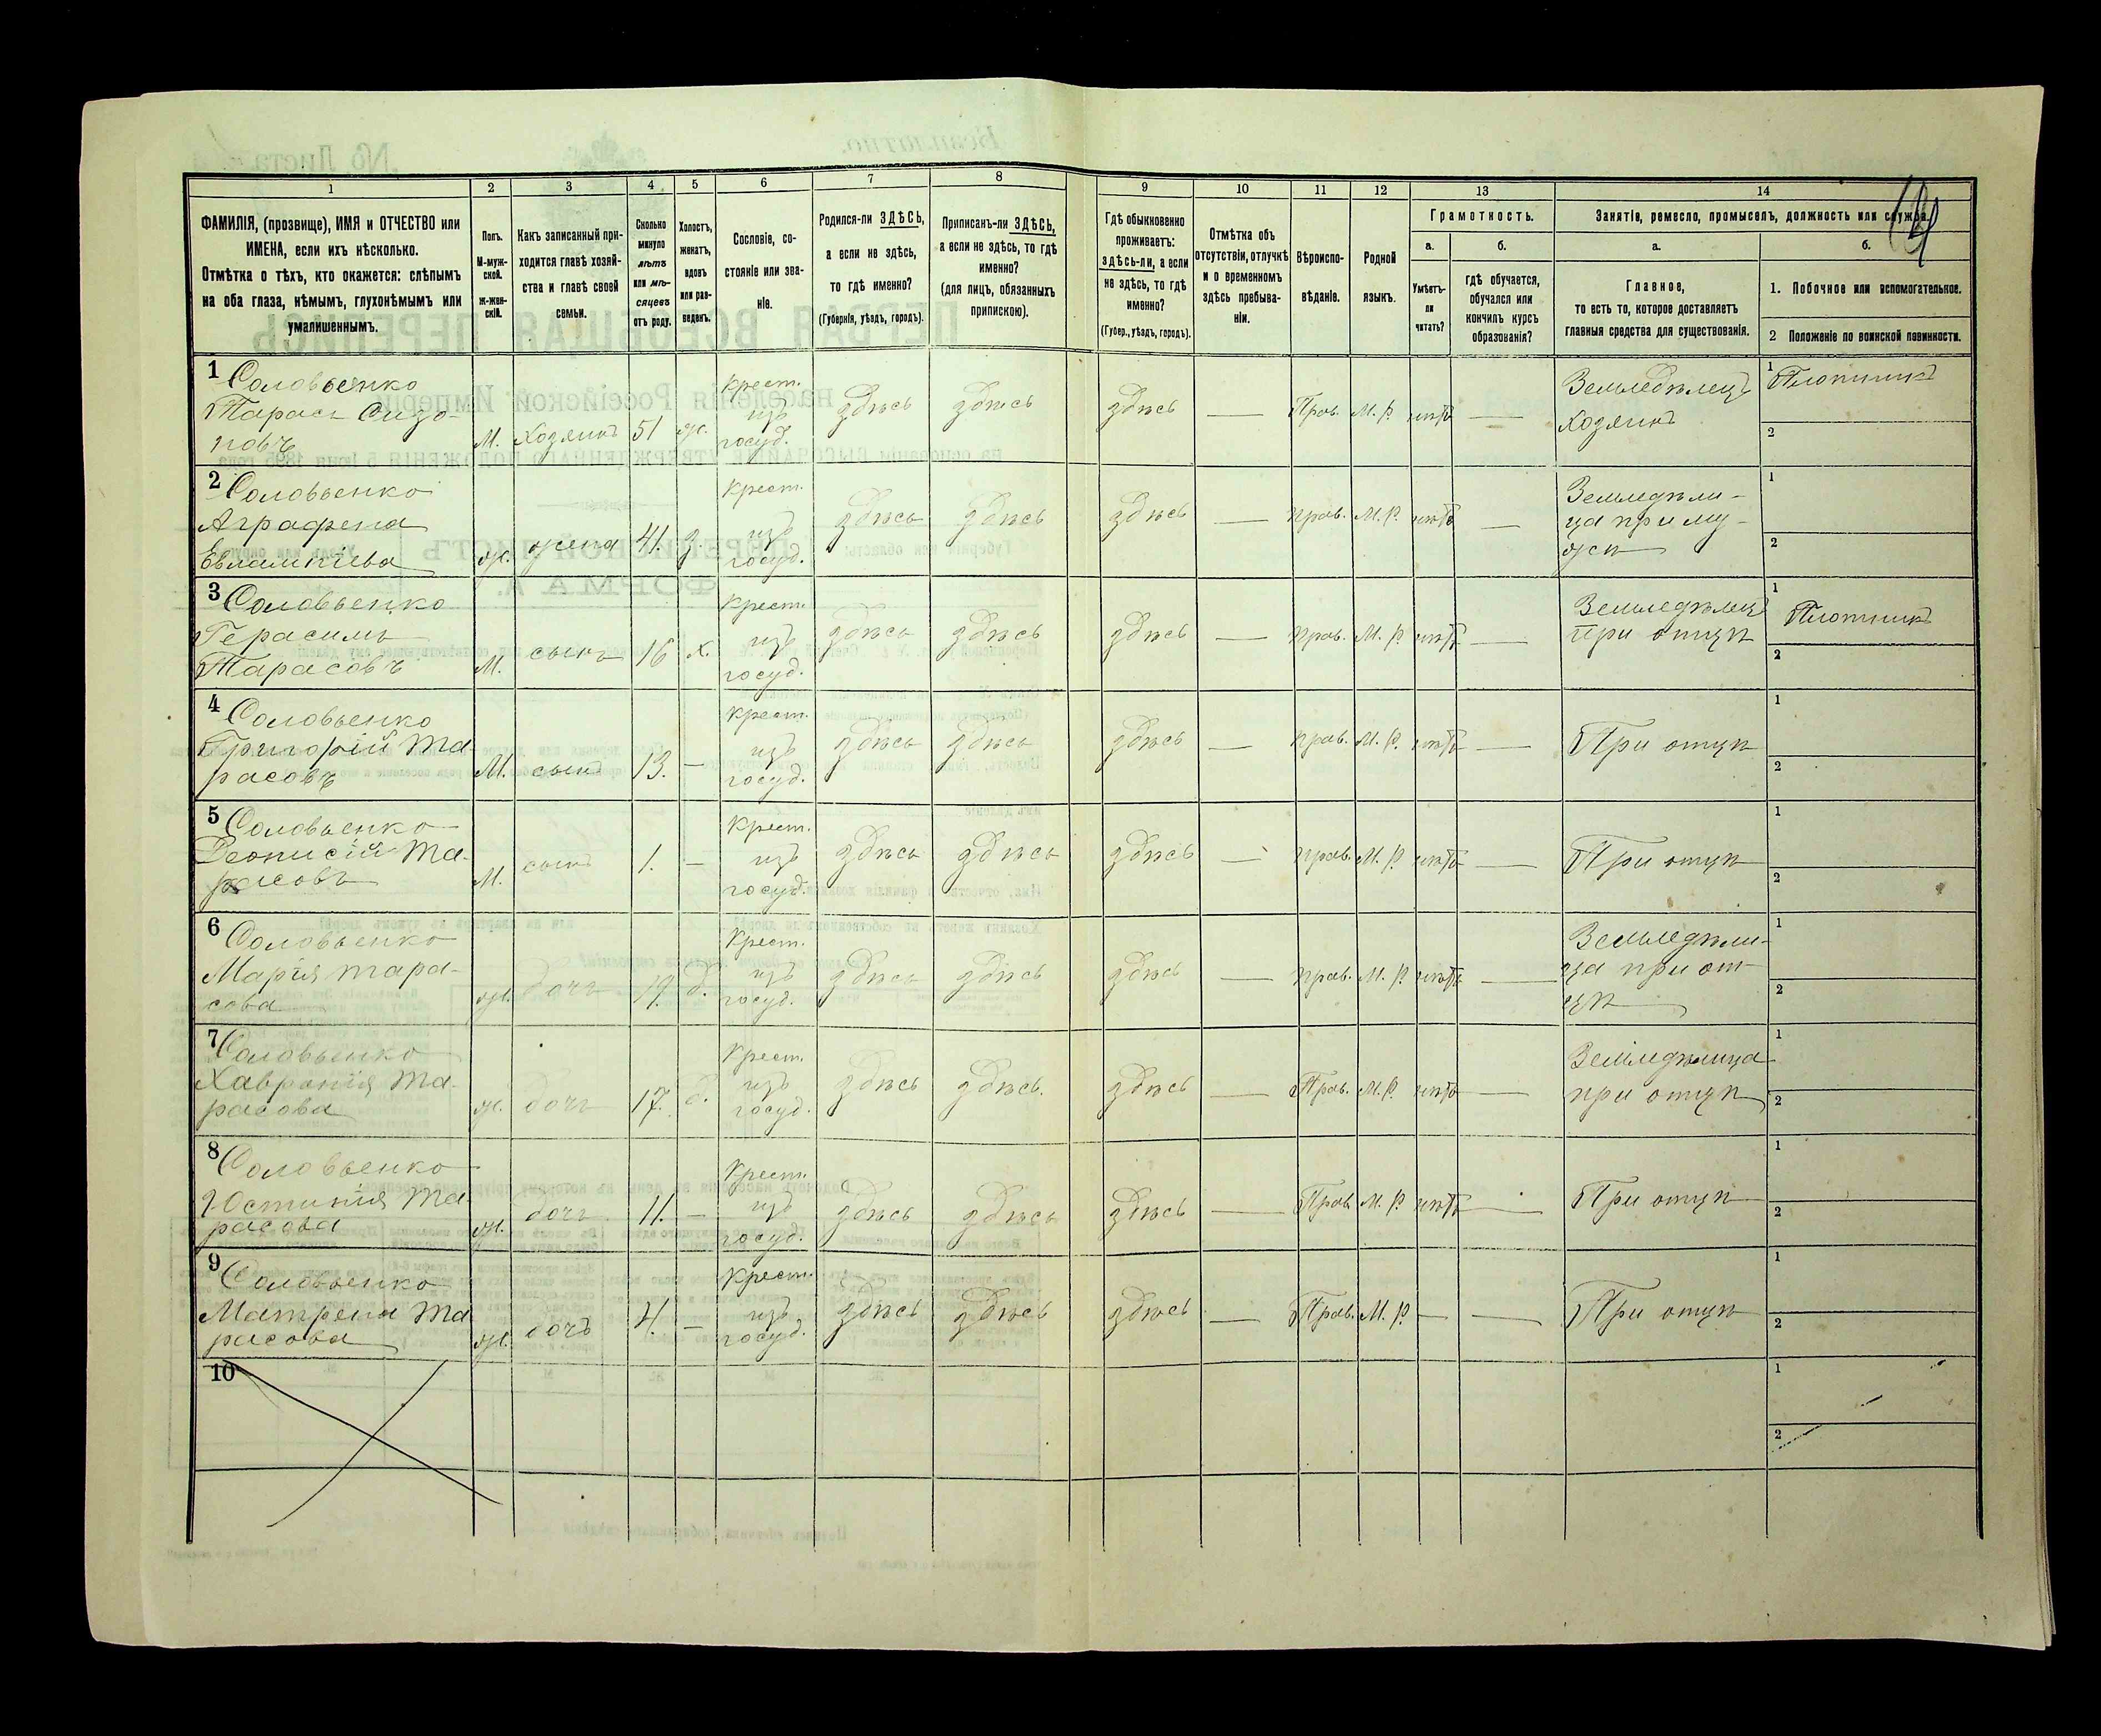 1 2 3 4 5 6 7 8 9 10 11 12 13 14
ФАМИЛІЯ, (прозвище), ИМЯ и ОТЧЕСТВО или
ИМЕНА, если ихъ нѣсколько.
Отмѣтка о тѣхъ, кто окажется: слѣпымъ
на оба глаза, нѣмымъ, глухонѣмымъ или
умалишеннымъ.
Полъ.
М-муж-
ской.
Ж-жен-
скій.
Какъ записанный при-
ходится главѣ хозяй-
ства и главѣ своей
семьи.
Сколько
минуло
лѣтъ
или мѣ-
сяцевъ
отъ роду.
Холостъ,
женатъ,
вдовъ
или раз-
веденъ.
Сословіе, со-
стояніе или зва-
ніе.
Родился-ли ЗДѢСЬ,
а если не здѣсь,
то гдѣ именно?
(Губернія, уѣздъ, городъ).
Приписанъ-ли ЗДѢСЬ,
а если не здѣсь, то гдѣ
именно?
(для лицъ, обязанныхъ
припискою).
Гдѣ обыкновенно
проживаетъ:
здѣсь-ли, а если
не здѣсь, то гдѣ
именно?
(Губер., уѣздъ, городъ).
Отмѣтка объ
отсутствіи, отлучкѣ
и о временномъ
здѣсь пребыва-
ніи.
Вѣроиспо-
вѣданіе.
Родной
языкъ.
Грамотность.
а.
Умѣетъ-
ли
читать?
б.
гдѣ обучается,
обучался или
кончилъ курсъ
образованія?
Занятія, ремесло, промыселъ, должность или служба.
а.
Главное,
то есть то, которое доставляетъ
главныя средства для существованія.
б.
1. Побочное или вспомогательное.
2 Положеніе по воинской повинности.
1 Соловьенко
Тарасъ Сизо-
новъ
М. Хозяинъ 51 ж.
Крест.
изъ
госуд.
здѣсь здѣсь здѣсь — Прав. М. Р. нѣтъ —
Земледѣлецъ
хозяинъ
1 Плотникъ
2
2 Соловьенко
Аграфена
Евлампіева
ж. жена 41. з.
Крест.
изъ
госуд.
здѣсь здѣсь здѣсь — прав. М. Р. нѣтъ —
Земледѣли-
ца при му-
жѣ
1
2
3 Соловьенко
Герасимъ
Тарасовъ
М. сынъ 16 х.
Крест.
изъ
госуд.
здѣсь здѣсь здѣсь — прав. М. Р. нѣтъ —
Земледѣлецъ
при отцѣ
1 Плотникъ
2
4 Соловьенко
Григорій Та-
расовъ
М. сынъ 13. —
Крест.
изъ
госуд.
здѣсь здѣсь здѣсь — прав. М. Р. нѣтъ —
При отцѣ
1
2
5 Соловьенко
Деонисій Та-
расовъ
М. сынъ 1. —
Крест.
изъ
госуд.
здѣсь здѣсь здѣсь — прав. М. Р. нѣтъ —
При отцѣ
1
2
6 Соловьенко
Марія Тара-
сова
ж. дочь 19. д.
Крест.
изъ
госуд.
здѣсь здѣсь здѣсь — прав. М. Р. нѣтъ —
Земледѣли-
ца при от-
цѣ
1
2
7 Соловьенко
Хавронія Та-
расова
ж. дочь 17. д.
Крест.
изъ
госуд.
здѣсь здѣсь. здѣсь — Прав. М. Р. нѣтъ —
Земледѣлица
при отцѣ
1
2
8 Соловьенко
Юстинія Та-
расова
ж. дочь 11. —
Крест.
изъ
госуд.
здѣсь здѣсь здѣсь — Прав. М. Р. нѣтъ —
При отцѣ
1
2
9 Соловьенко
Матрена Та-
расова
ж. дочь 4. —
Крест.
изъ
госуд.
здѣсь здѣсь здѣсь — Прав. М. Р. — —
При отцѣ
1
2
10
1
2